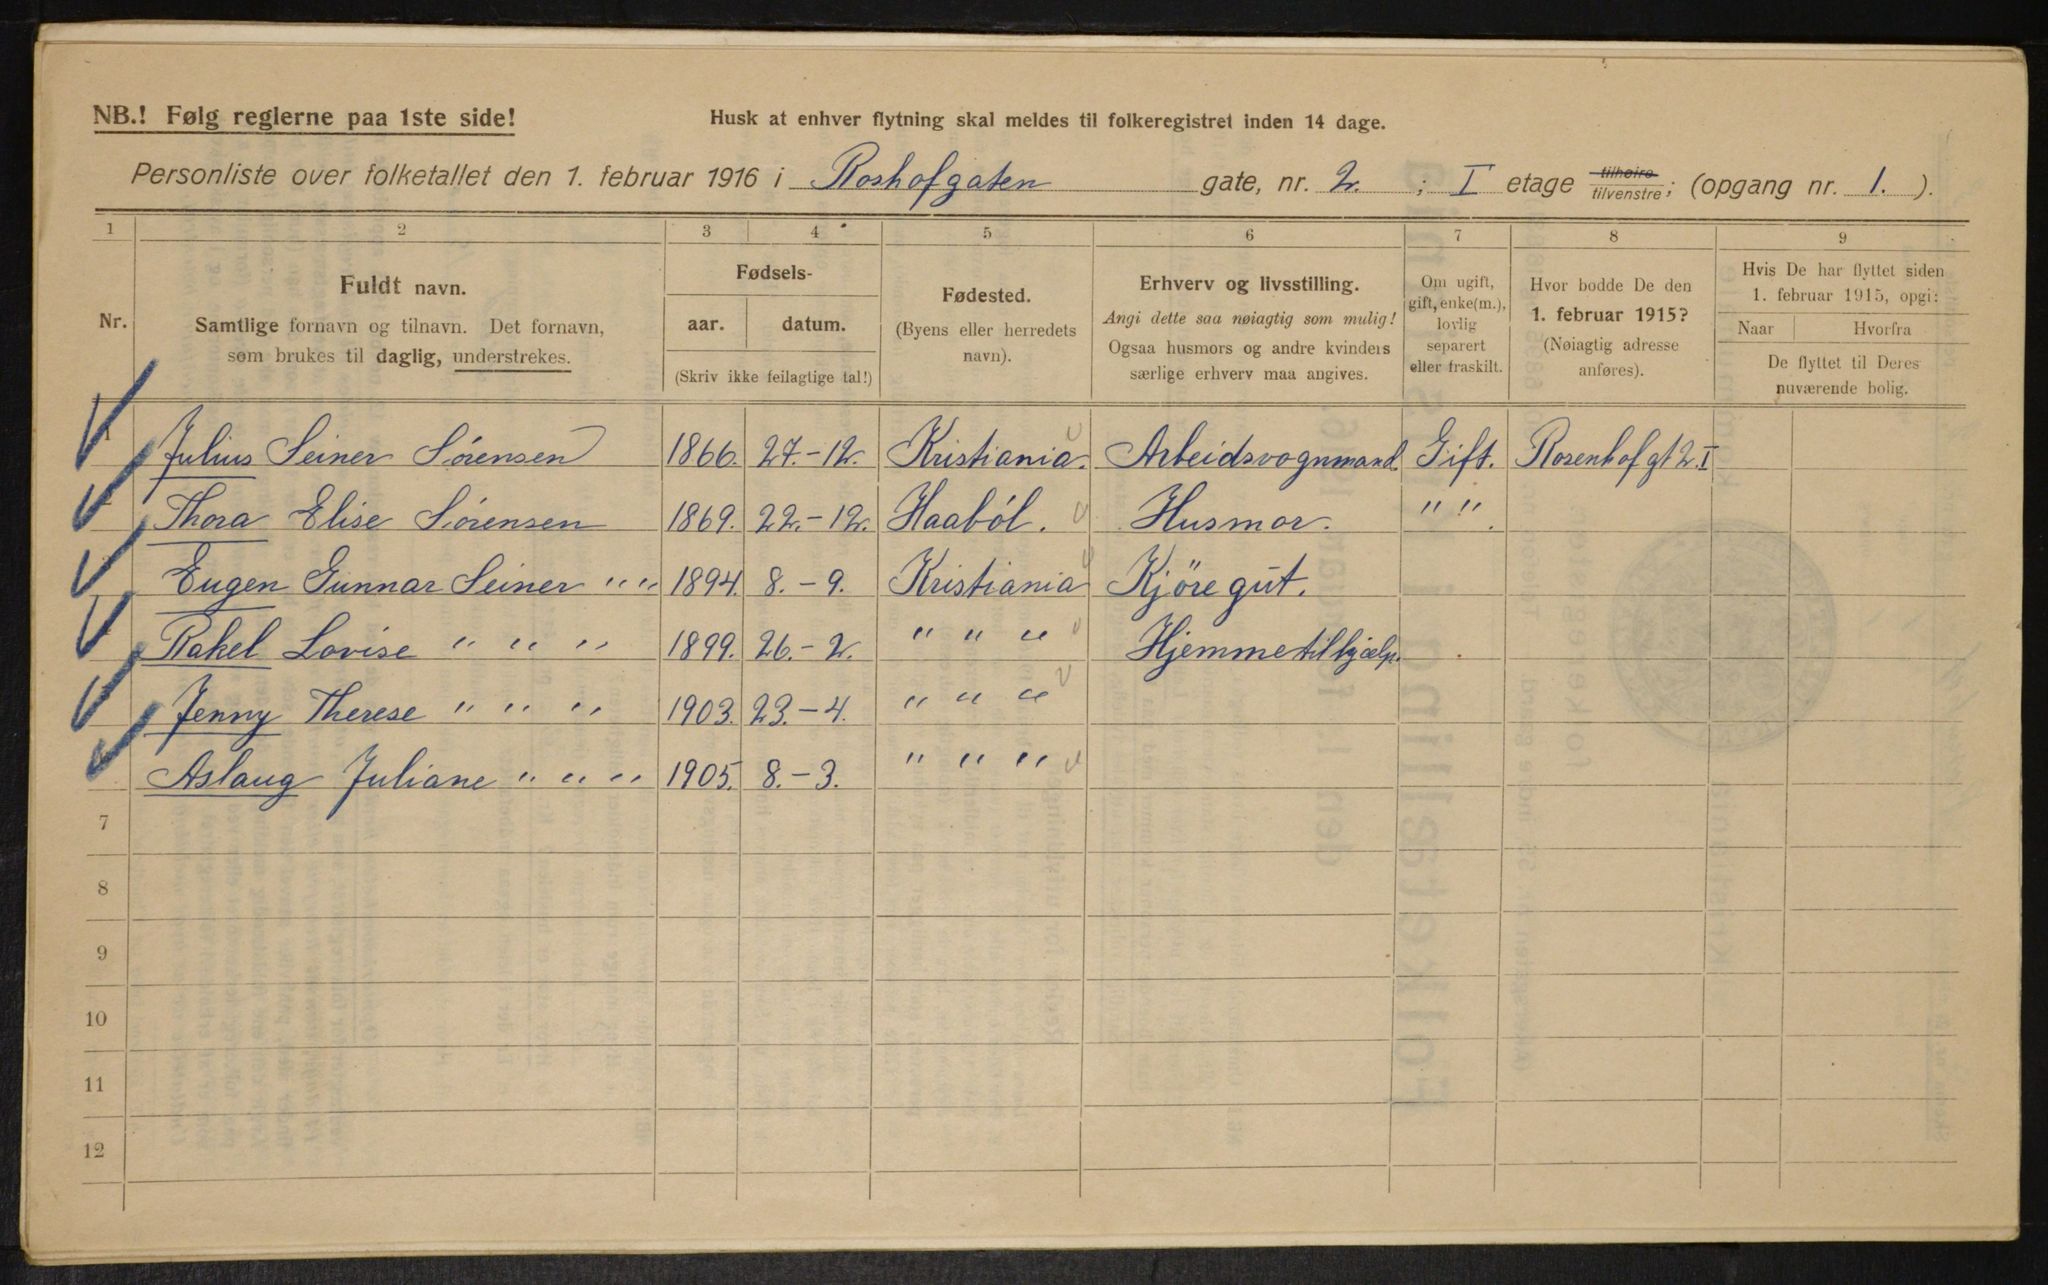 NB.! Følg reglerne paa 1ste side!
Husk at enhver flytning skal meldes til folkeregistret inden 14 dage.
Personliste over folketallet den 1. februar 1916 i Roshofgaten gate, nr. 2. ; I etage tilhøire tilvenstre; (opgang nr. 1. ).
1 2 3 4 5 6 7 8 9
Nr.
Fuldt navn.
Samtlige fornavn og tilnavn. Det fornavn,
som brukes til daglig, understrekes.
Fødsels-
aar. datum.
(Skriv ikke feilagtige tal!)
Fødested.
(Byens eller herredets
navn).
Erhverv og livsstilling.
Angi dette saa nøiagtig som mulig!
Ogsaa husmors og andre kvinders
særlige erhverv maa angives.
Om ugift,
gift, enke(m.),
lovlig
separert
eller fraskilt.
Hvor bodde De den
1. februar 1915?
(Nøiagtig adresse
anføres).
Hvis De har flyttet siden
1. februar 1915, opgi:
Naar Hvorfra
De flyttet til Deres
nuværende bolig.
1 Julius Seiner Sørensen 1866. 27.-12. Kristiania. Arbeidsvognmand. Gift. Rosenhofgt 2. I
Thora Elise Sørensen 1869. 22.-12. Haaböl. Husmor. " ".
Eugen Gunnar Seiner " " 1894. 8.-9. Kristiania Kjöregut.
Rakel Lovise " " " 1899. 26.-2. " " " Hjemmetilhjælp.
Jenny Therese " " " 1903. 23.-4. " " "
Aslaug Juliane " " " 1905. 8.-3. " " "
7
8
9
10
11
12